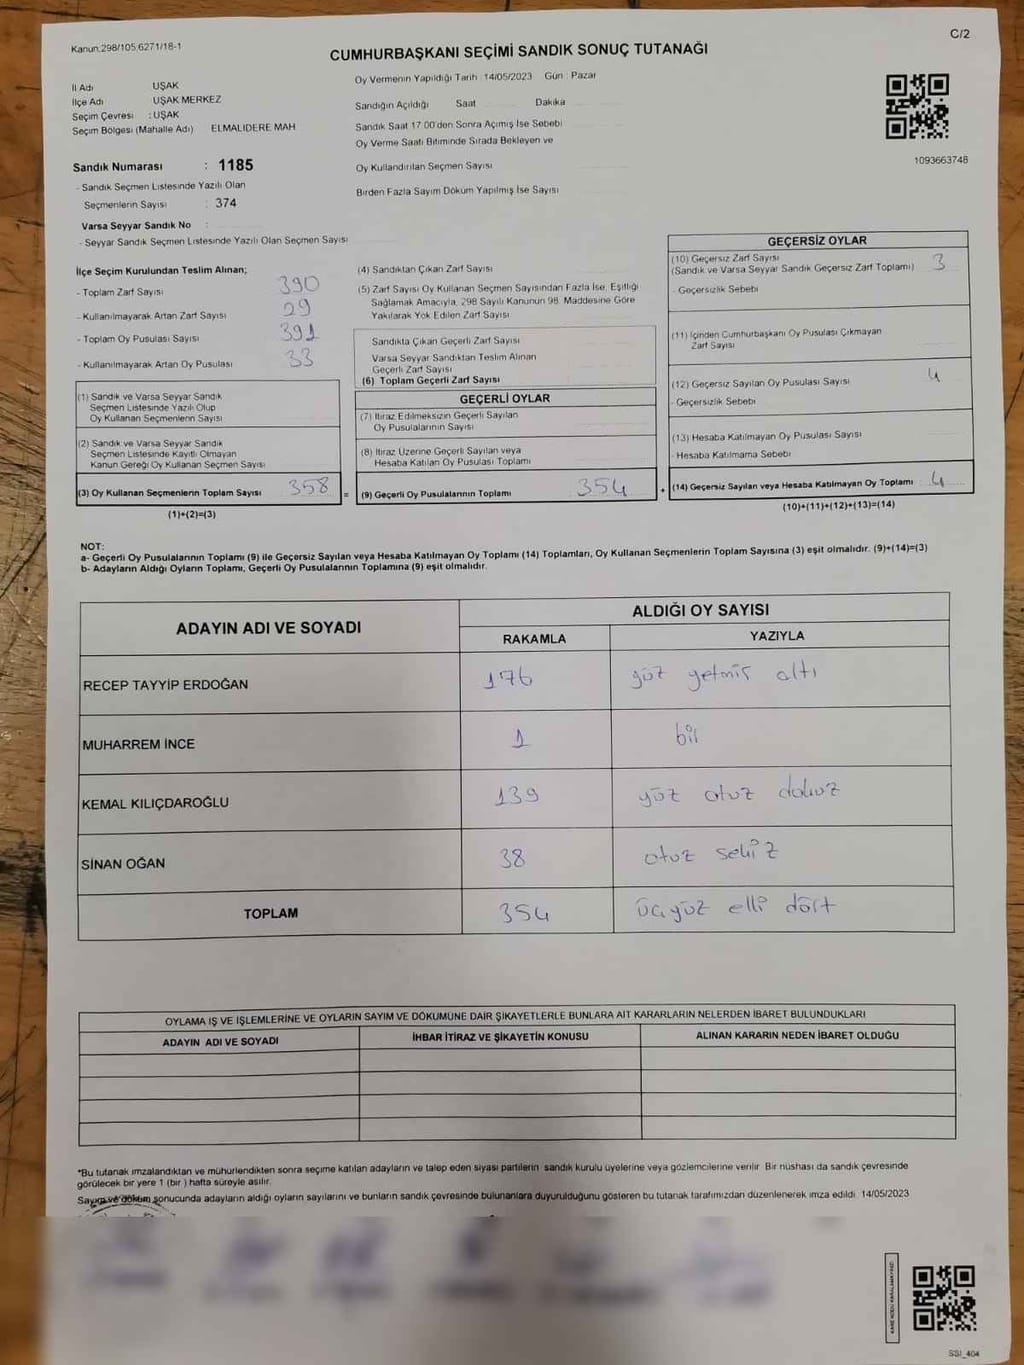 Kanun.298/105.6271/18-1
C/2
CUMHURBAŞKANI SEÇİMİ SANDIK SONUÇ TUTANAĞI
İl Adı UŞAK
İlçe Adı UŞAK MERKEZ
Seçim Çevresi : UŞAK
Seçim Bölgesi (Mahalle Adı) ELMALIDERE MAH
Sandık Numarası : 1185
- Sandık Seçmen Listesinde Yazılı Olan
Seçmenlerin Sayısı : 374
Varsa Seyyar Sandık No :
- Seyyar Sandık Seçmen Listesinde Yazılı Olan Seçmen Sayısı
Oy Vermenin Yapıldığı Tarih 14/05/2023 Gün Pazar
Sandığın Açıldığı Saat Dakika
Sandık Saat 17 00'den Sonra Açımış İse Sebebi
Oy Verme Saati Bitiminde Sırada Bekleyen ve
Oy Kullandırılan Seçmen Sayısı
Birden Fazla Sayım Döküm Yapılmış İse Sayısı
1093663748
İlçe Seçim Kurulundan Teslim Alınan;
- Toplam Zarf Sayısı 390
- Kullanılmayarak Artan Zarf Sayısı 29
- Toplam Oy Pusulası Sayısı 391
- Kullanılmayarak Artan Oy Pusulası 33
(1) Sandık ve Varsa Seyyar Sandık
Seçmen Listesinde Yazılı Olup
Oy Kullanan Seçmenlerin Sayısı
(2) Sandık ve Varsa Seyyar Sandık
Seçmen Listesinde Kayıtlı Olmayan
Kanun Gereği Oy Kullanan Seçmen Sayısı
(3) Oy Kullanan Seçmenlerin Toplam Sayısı 358 =
(1)+(2)=(3)
(4) Sandıktan Çıkan Zarf Sayısı
(5) Zarf Sayısı Oy Kullanan Seçmen Sayısından Fazla İse, Eşitliği
Sağlamak Amacıyla, 298 Sayılı Kanunun 98. Maddesine Göre
Yakılarak Yok Edilen Zarf Sayısı
Sandıkta Çıkan Geçerli Zarf Sayısı
Varsa Seyyar Sandıktan Teslim Alınan
Geçerli Zarf Sayısı
(6) Toplam Geçerli Zarf Sayısı
GEÇERLİ OYLAR
(7) İtiraz Edilmeksizin Geçerli Sayılan
Oy Pusulalarının Sayısı
(8) İtiraz Üzerine Geçerli Sayılan veya
Hesaba Katılan Oy Pusulası Toplamı
(9) Geçerli Oy Pusulalarının Toplamı 354 +
GEÇERSİZ OYLAR
(10) Geçersiz Zarf Sayısı 3
(Sandık ve Varsa Seyyar Sandık Geçersiz Zarf Toplamı)
- Geçersizlik Sebebi
(11) İçinden Cumhurbaşkanı Oy Pusulası Çıkmayan
Zarf Sayısı
(12) Geçersiz Sayılan Oy Pusulası Sayısı 4
- Geçersizlik Sebebi
(13) Hesaba Katılmayan Oy Pusulası Sayısı
- Hesaba Katılmama Sebebi
(14) Geçersiz Sayılan veya Hesaba Katılmayan Oy Toplamı 4
(10)+(11)+(12)+(13)=(14)
NOT:
a- Geçerli Oy Pusulalarının Toplamı (9) ile Geçersiz Sayılan veya Hesaba Katılmayan Oy Toplamı (14) Toplamları, Oy Kullanan Seçmenlerin Toplam Sayısına (3) eşit olmalıdır. (9)+(14)=(3)
b- Adayların Aldığı Oyların Toplamı, Geçerli Oy Pusulalarının Toplamına (9) eşit olmalıdır.
ADAYIN ADI VE SOYADI ALDIĞI OY SAYISI
RAKAMLA YAZIYLA
RECEP TAYYİP ERDOĞAN 176 yüz yetmiş altı
MUHARREM İNCE 1 bir
KEMAL KILIÇDAROĞLU 139 yüz otuz dokuz
SİNAN OĞAN 38 otuz sekiz
TOPLAM 354 üçyüz elli dört
OYLAMA İŞ VE İŞLEMLERİNE VE OYLARIN SAYIM VE DÖKÜMÜNE DAİR ŞİKAYETLERLE BUNLARA AİT KARARLARIN NELERDEN İBARET BULUNDUKLARI
ADAYIN ADI VE SOYADI İHBAR İTİRAZ VE ŞİKAYETİN KONUSU ALINAN KARARIN NEDEN İBARET OLDUĞU
*Bu tutanak imzalandıktan ve mühürlendikten sonra seçime katılan adayların ve talep eden siyasi partilerin sandık kurulu üyelerine veya gözlemcilerine verilir. Bir nüshası da sandık çevresinde
görülecek bir yere 1 (bir ) hafta süreyle asılır.
Sayım ve döküm sonucunda adayların aldığı oyların sayılarını ve bunların sandık çevresinde bulunanlara duyurulduğunu gösteren bu tutanak tarafımızdan düzenlenerek imza edildi. 14/05/2023
KARE KODU KARALAMAYINIZ!
SSI_404